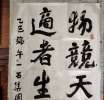 物競天
適者生
乙巳端午一石某园